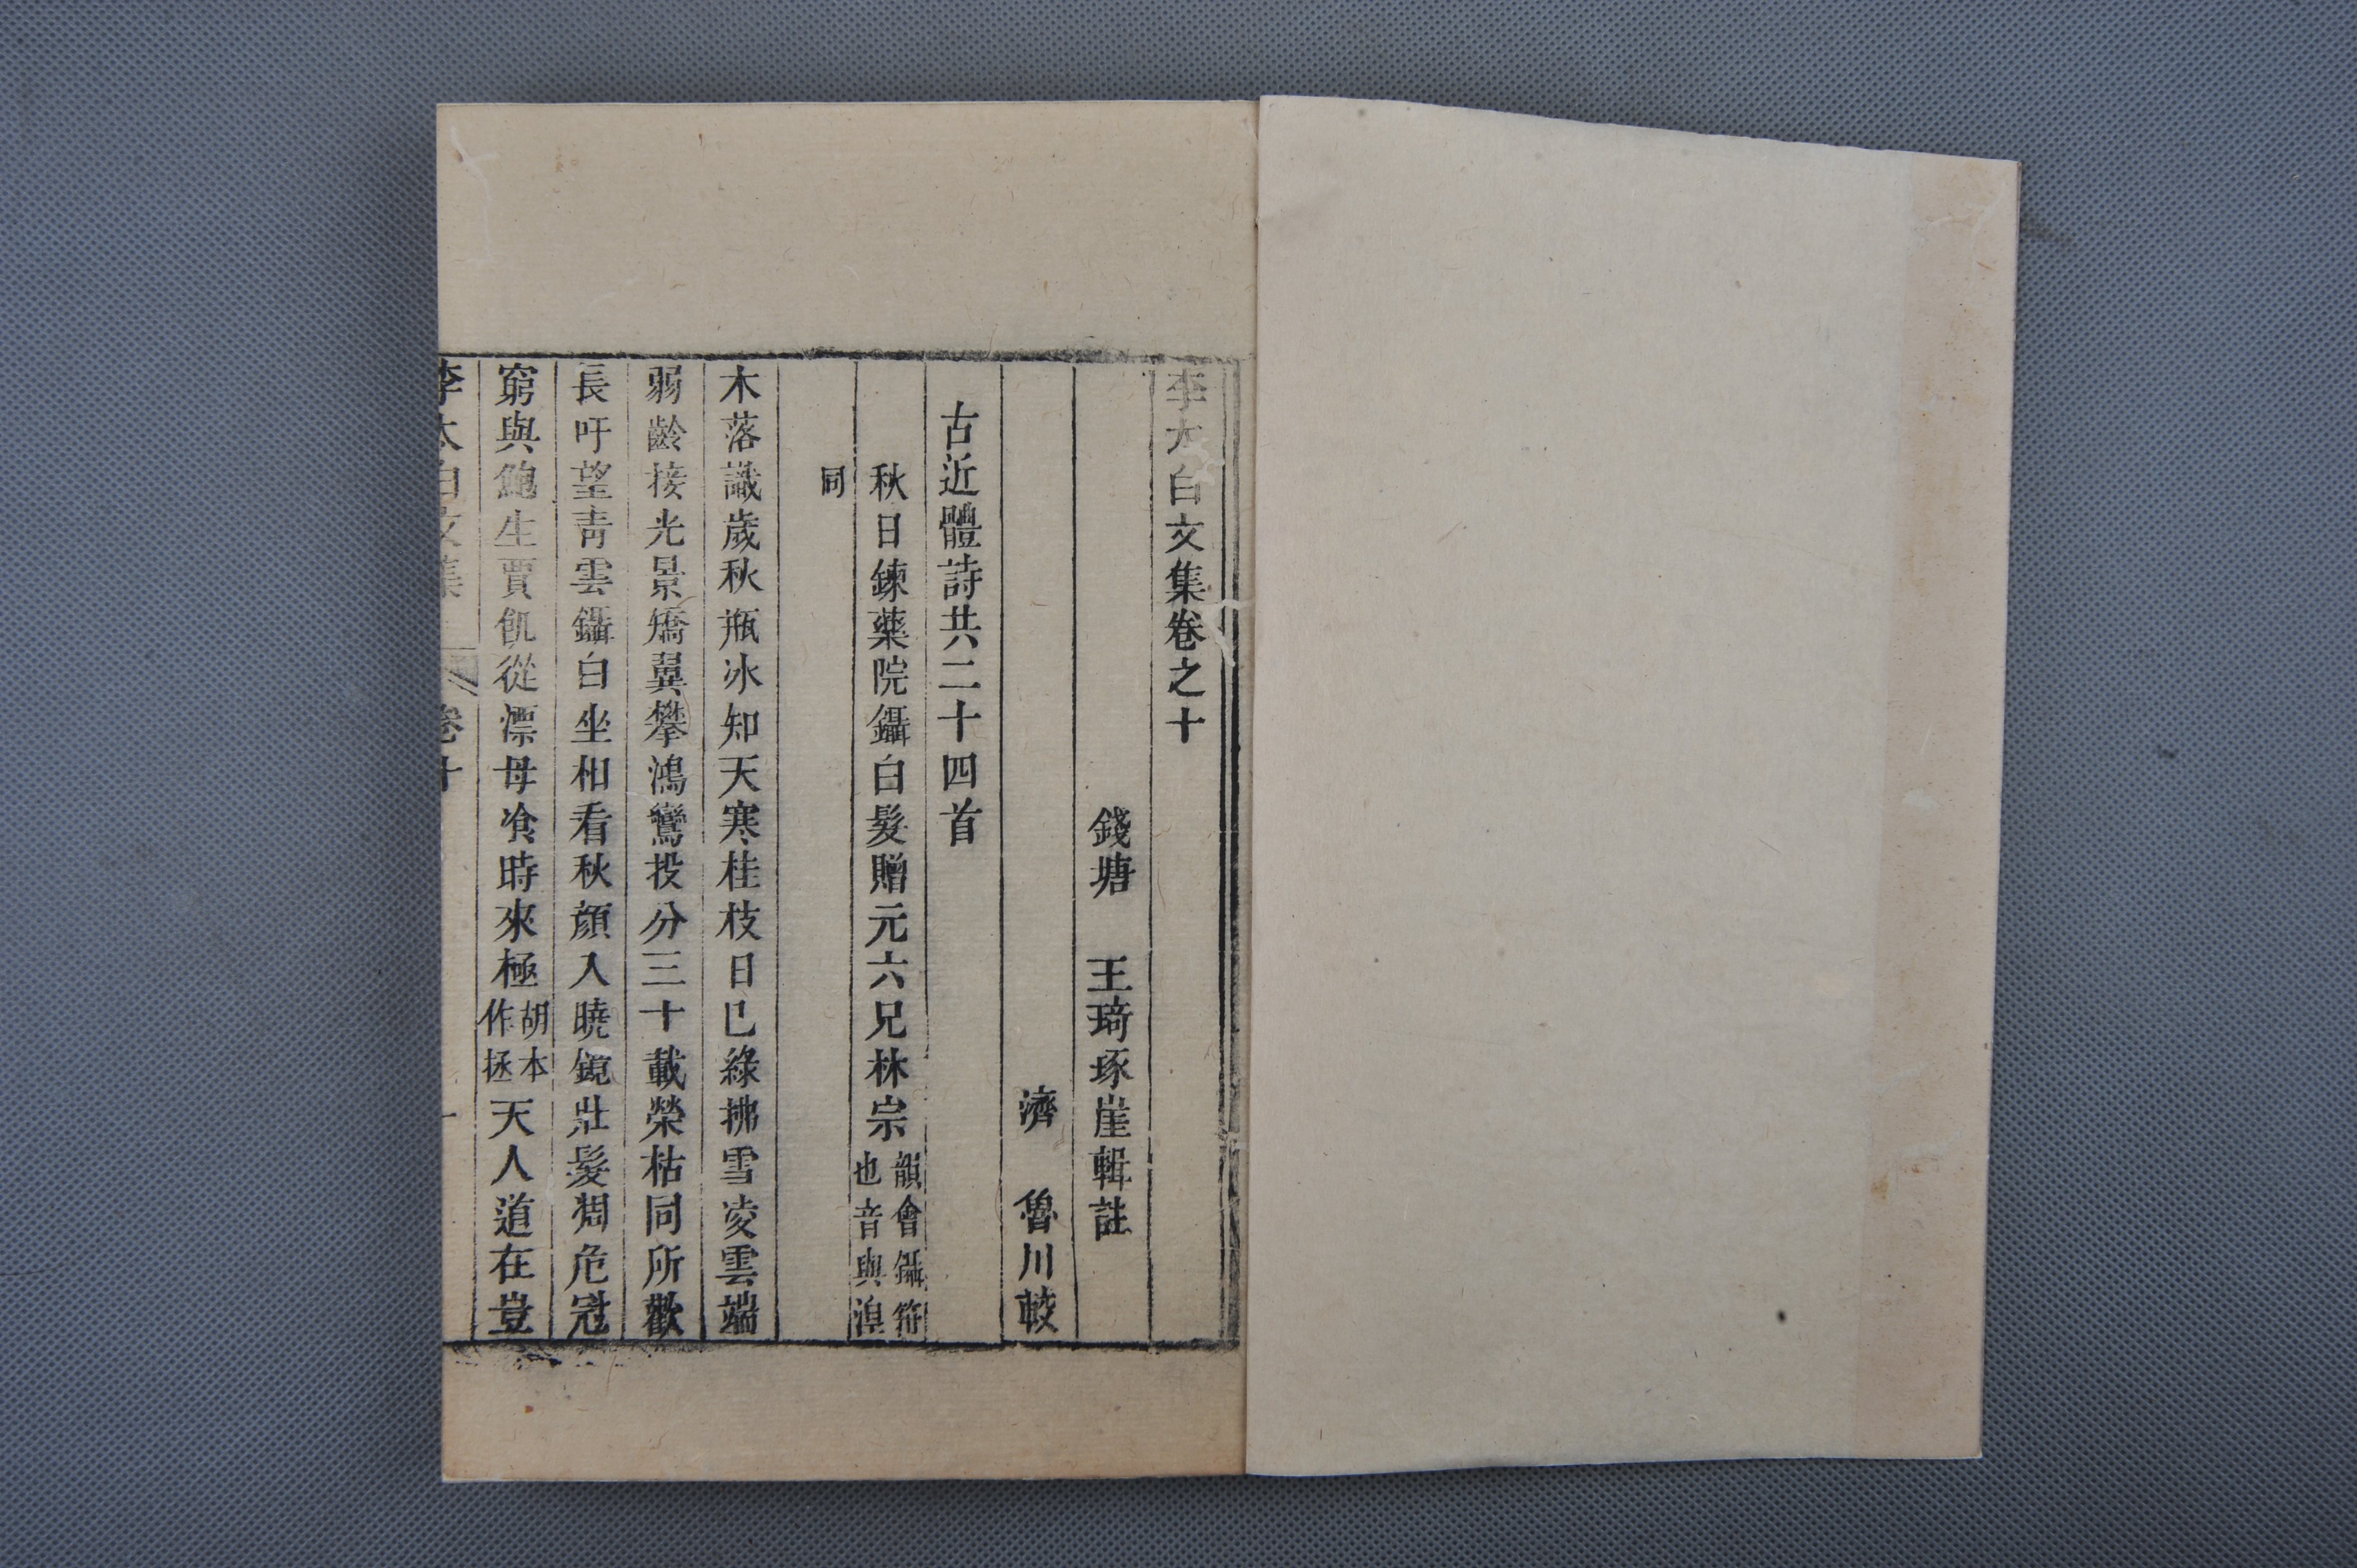 李太白文集卷之十
錢塘　王琦琢崖輯註
濟　魯川較
古近體詩共二十四首
秋日鍊藥院鑷白髮贈元六兄林宗 韻會鑷符
也音與湟
同
木落識歲秋瓶冰知天寒桂枝日已綠拂雪凌雲端
弱齡接光景矯翼攀鴻鸞投分三十載榮枯同所歡
長吁望青雲鑷白坐相看秋顏入曉鏡壯髮凋危冠
窮與鮑生賈飢從漂母飡時來極 胡本
作拯 天人道在豈
李太白文集 卷十 一